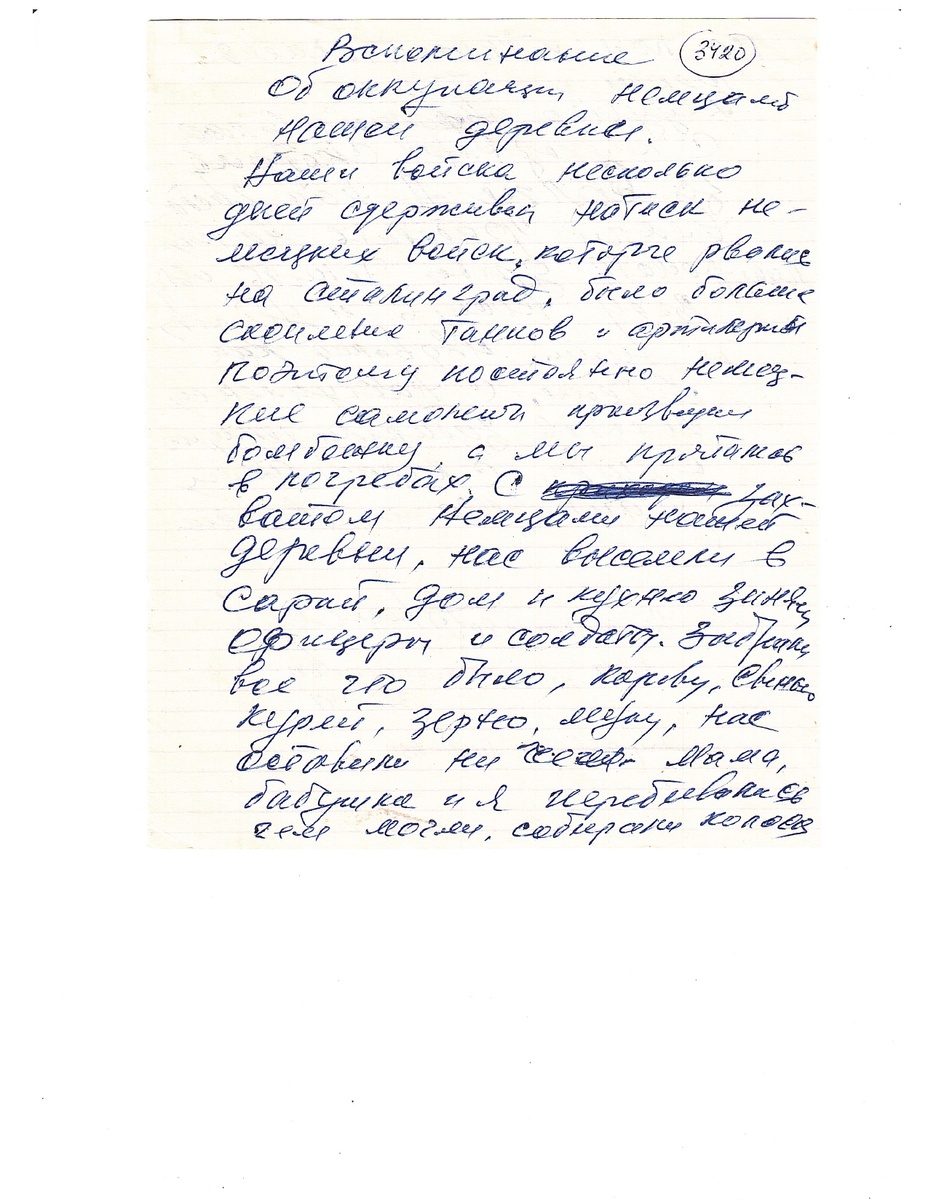 Воспоминание 3420
Об оккупации немцами
нашей деревни.
Наши войска несколько
дней сдерживали натиск не-
мецких войск, которые рвались
на Сталинград, было большое
скопление танков и артиллерии
поэтому постоянно немец-
кие самолеты производили
бомбежку, а мы прятались
в погребах. С зах-
ватом немцами нашей
деревни, нас выселили в
сарай, дом и кухню заняли
офицеры и солдаты. Забрали
все что было, корову, свинью
курей, зерно, муку, нас
оставили ни Мама,
бабушка и я перебивались
чем могли, собирали колоски